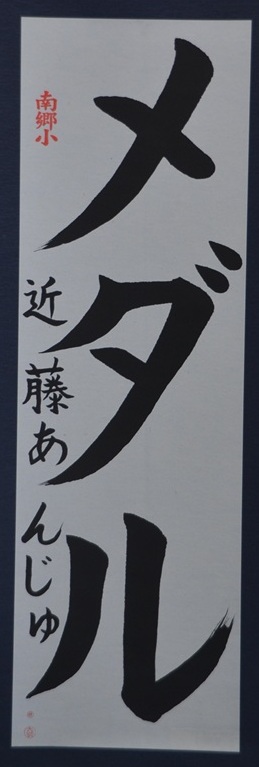 メダル
南郷小
近藤あんじゅ